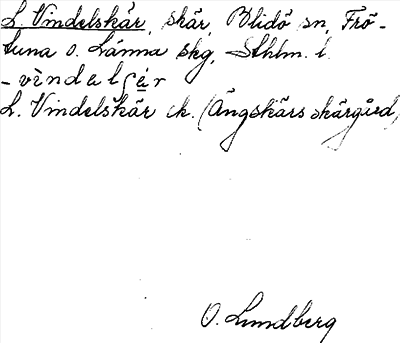 L. Vindelskär, skär, Blidö sn, Frö-
tuna o. Länna skg, Sthlm. l.
- vìndəlʃæ̀r
L. Vindelskär ek. (Ängskärs skärgård)
O. Lundberg